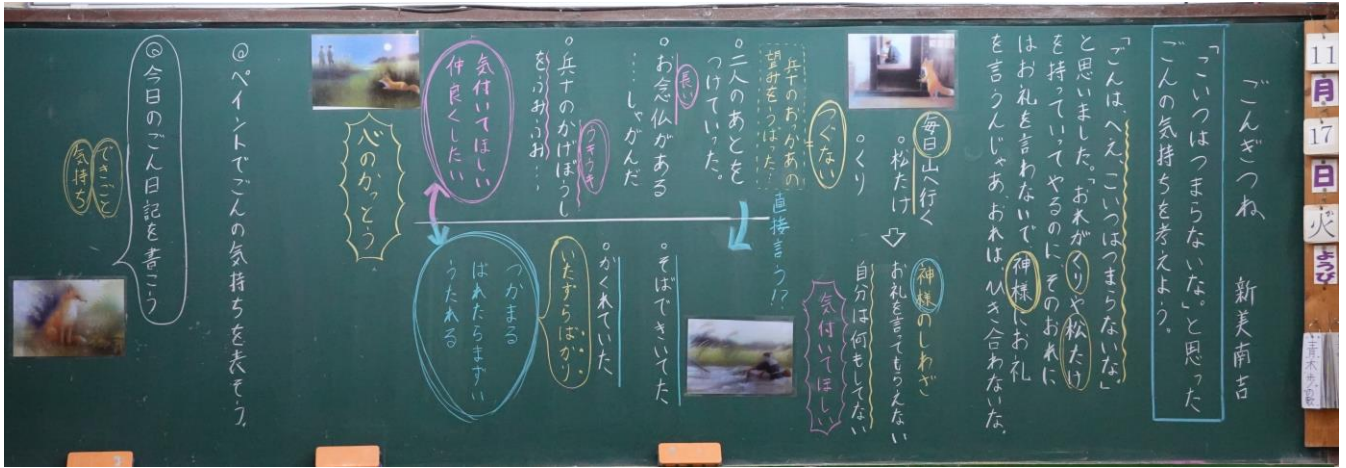 ごんぎつね　新美南吉
「こいつはつまらないな。」と思った
ごんの気持ちを考えよう。
「ごんは、へえ、こいつはつまらないな。」
と思いました。「おれがくりや松たけ
を持っていってやるのに、そのおれに
はお礼を言わないで、神様にお礼
を言うんじゃあ、おれはひき合わないな。
毎日山へ行く
。松たけ
。くり
つぐない
神様のしわざ
お礼を言ってもらえない
自分は何もしてない
気付いてほしい
兵十のおっかあの
望みをうばった…
直接言う!?
。二人のあとを
つけていった。
長い
。お念仏がある
…しゃがんだ
ウキウキ
。兵十のかげぼうし
をふみふみ…
気付いてほしい
仲良くしたい
。そばできいてた
。かくれていた
いたずらばかり
つかまる
ばれたらまずい
うたれる
心のかっとう
@ペイントでごんの気持ちを表そう。
◎今日のごん日記を書こう
できごと
気持ち
11
月
17
日
火
ようび